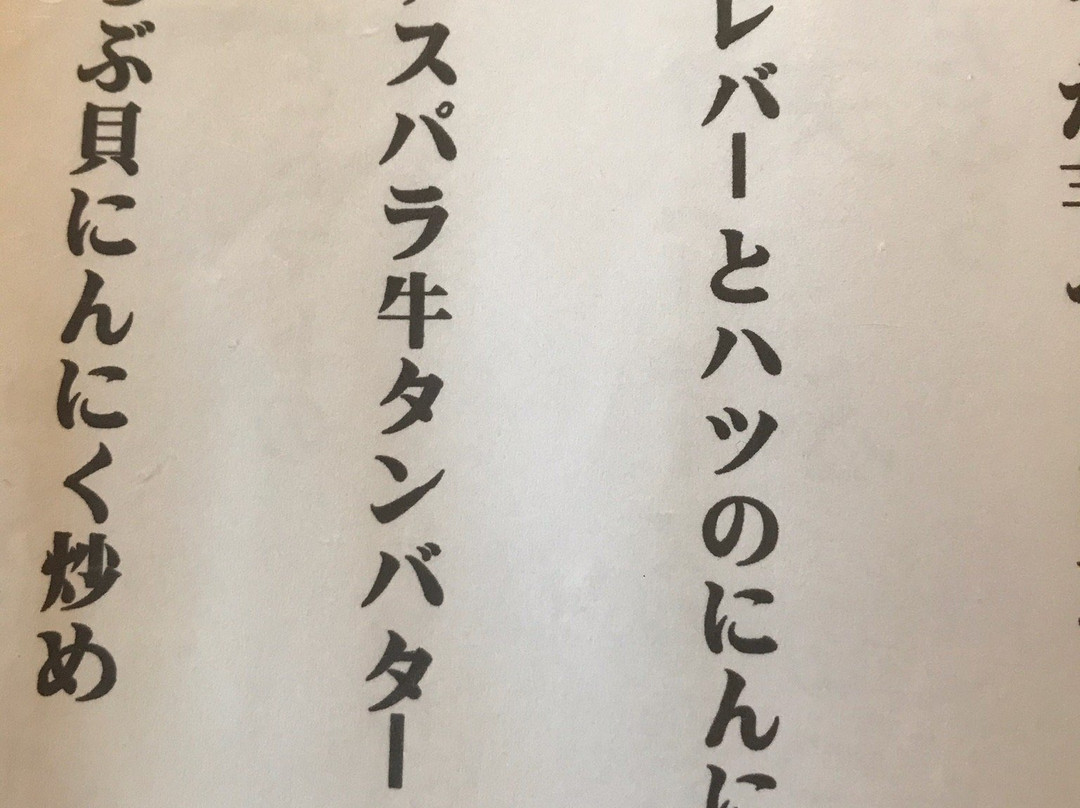 レバーとハツのにんに
スパラ牛タンバター
ぶ貝にんにく炒め